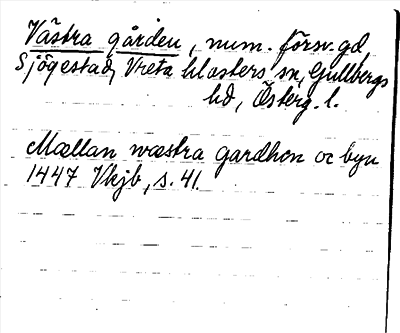 Västra gården, num. försv. gd,
Sjögestad, Vreta klosters sn, Gullbergs
hd, Österg. l.
Mællan wæstra gardhen oc byn
1447 Vkjb, s. 41.